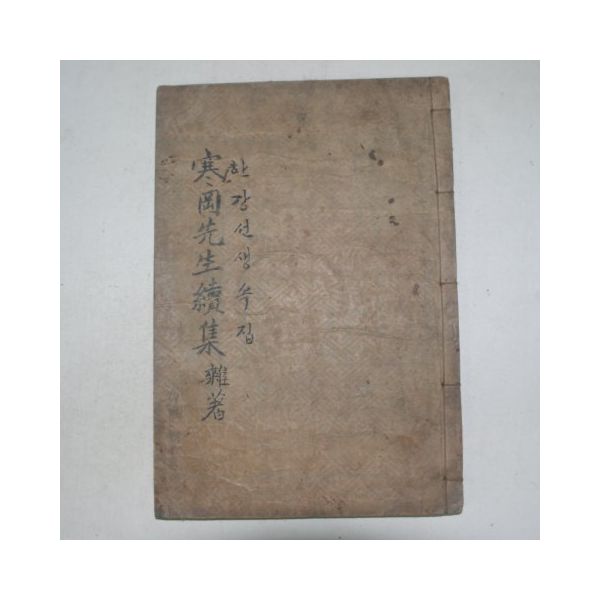 한강선생속집
寒岡先生續集 雜著